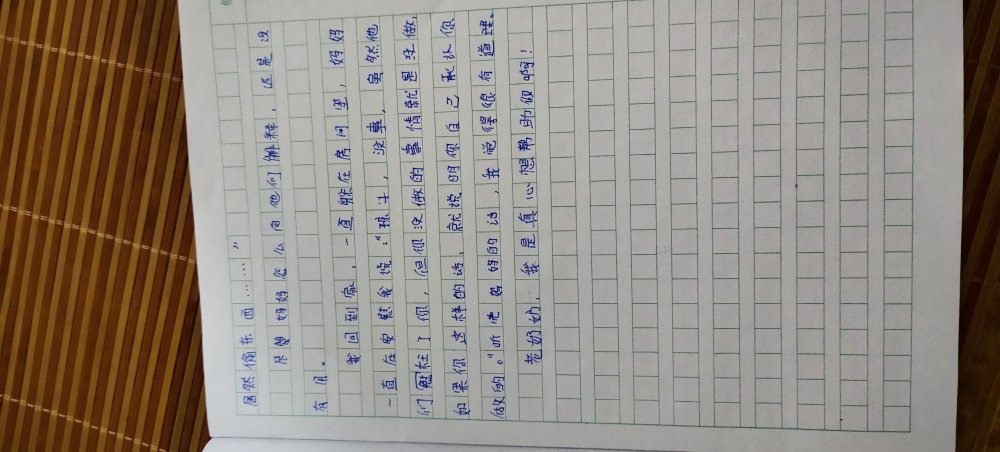 居然偷东西……”
尽管妈妈怎么向他们解释，还是没
有用。
我回到家，一直躲在房间里，妈妈
一直在安慰我说：“孩子，没事，虽然他
们冤枉了你，但你没做的事情就是没做，
如果你这样的话，就说明你自己承认你
做的。”听完妈妈的话，我觉得很有道理。
老奶奶，我是真心想帮助你啊！